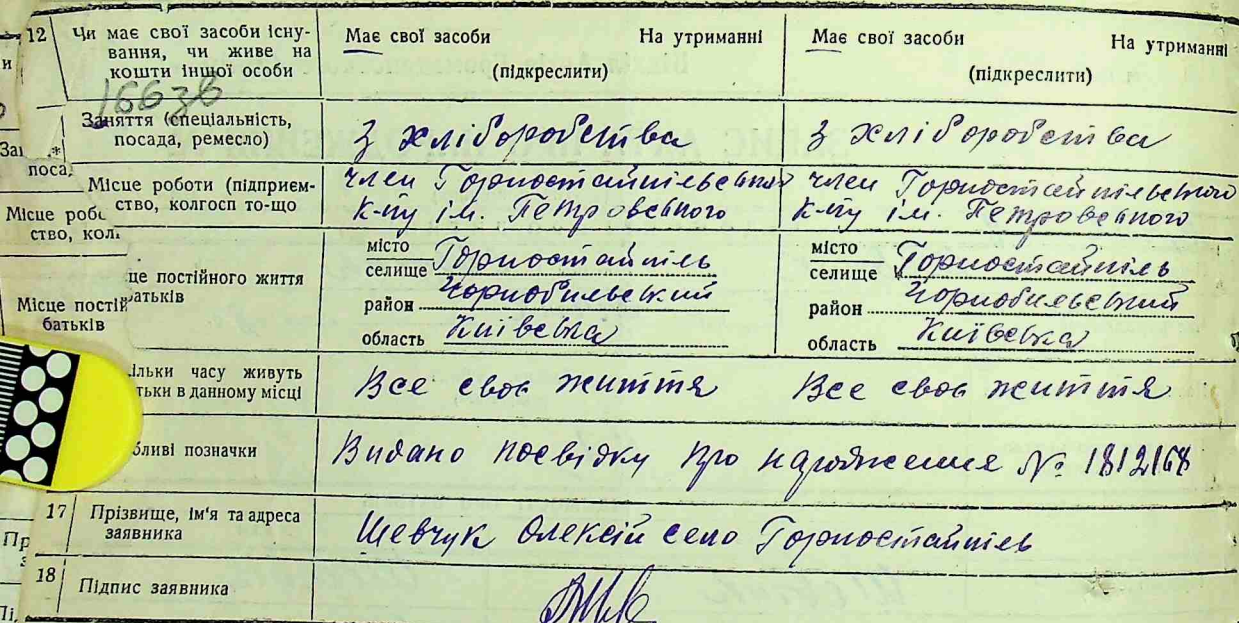 12 Чи має свої засоби існу-
вання, чи живе на
кошти іншої особи
Має свої засоби На утриманні
(підкреслити)
Має свої засоби На утриманні
(підкреслити)
1663в
Заняття (спеціальність,
посада, ремесло)
З хліборобства
З хліборобства
Місце роботи (підприєм-
ство, колгосп то-що
член Горностайпільського
к-пу ім. Петровського
член Горностайпільського
к-пу ім. Петровського
Місце робо
ство, кол
це постійного життя
батьків
місто
селище Горностайпіль
район Чорнобильський
область Київська
місто
селище Горностайпіль
район Чорнобильський
область Київська
Місце постій
батьків
ільки часу живуть
тьки в данному місці
Все своє життя
Все своє життя
бливі позначки
Видано посвідку про народження № 1812168
17 Прізвище, ім'я та адреса
заявника
Шевчук Олексій село Горностайпіль
18 Підпис заявника